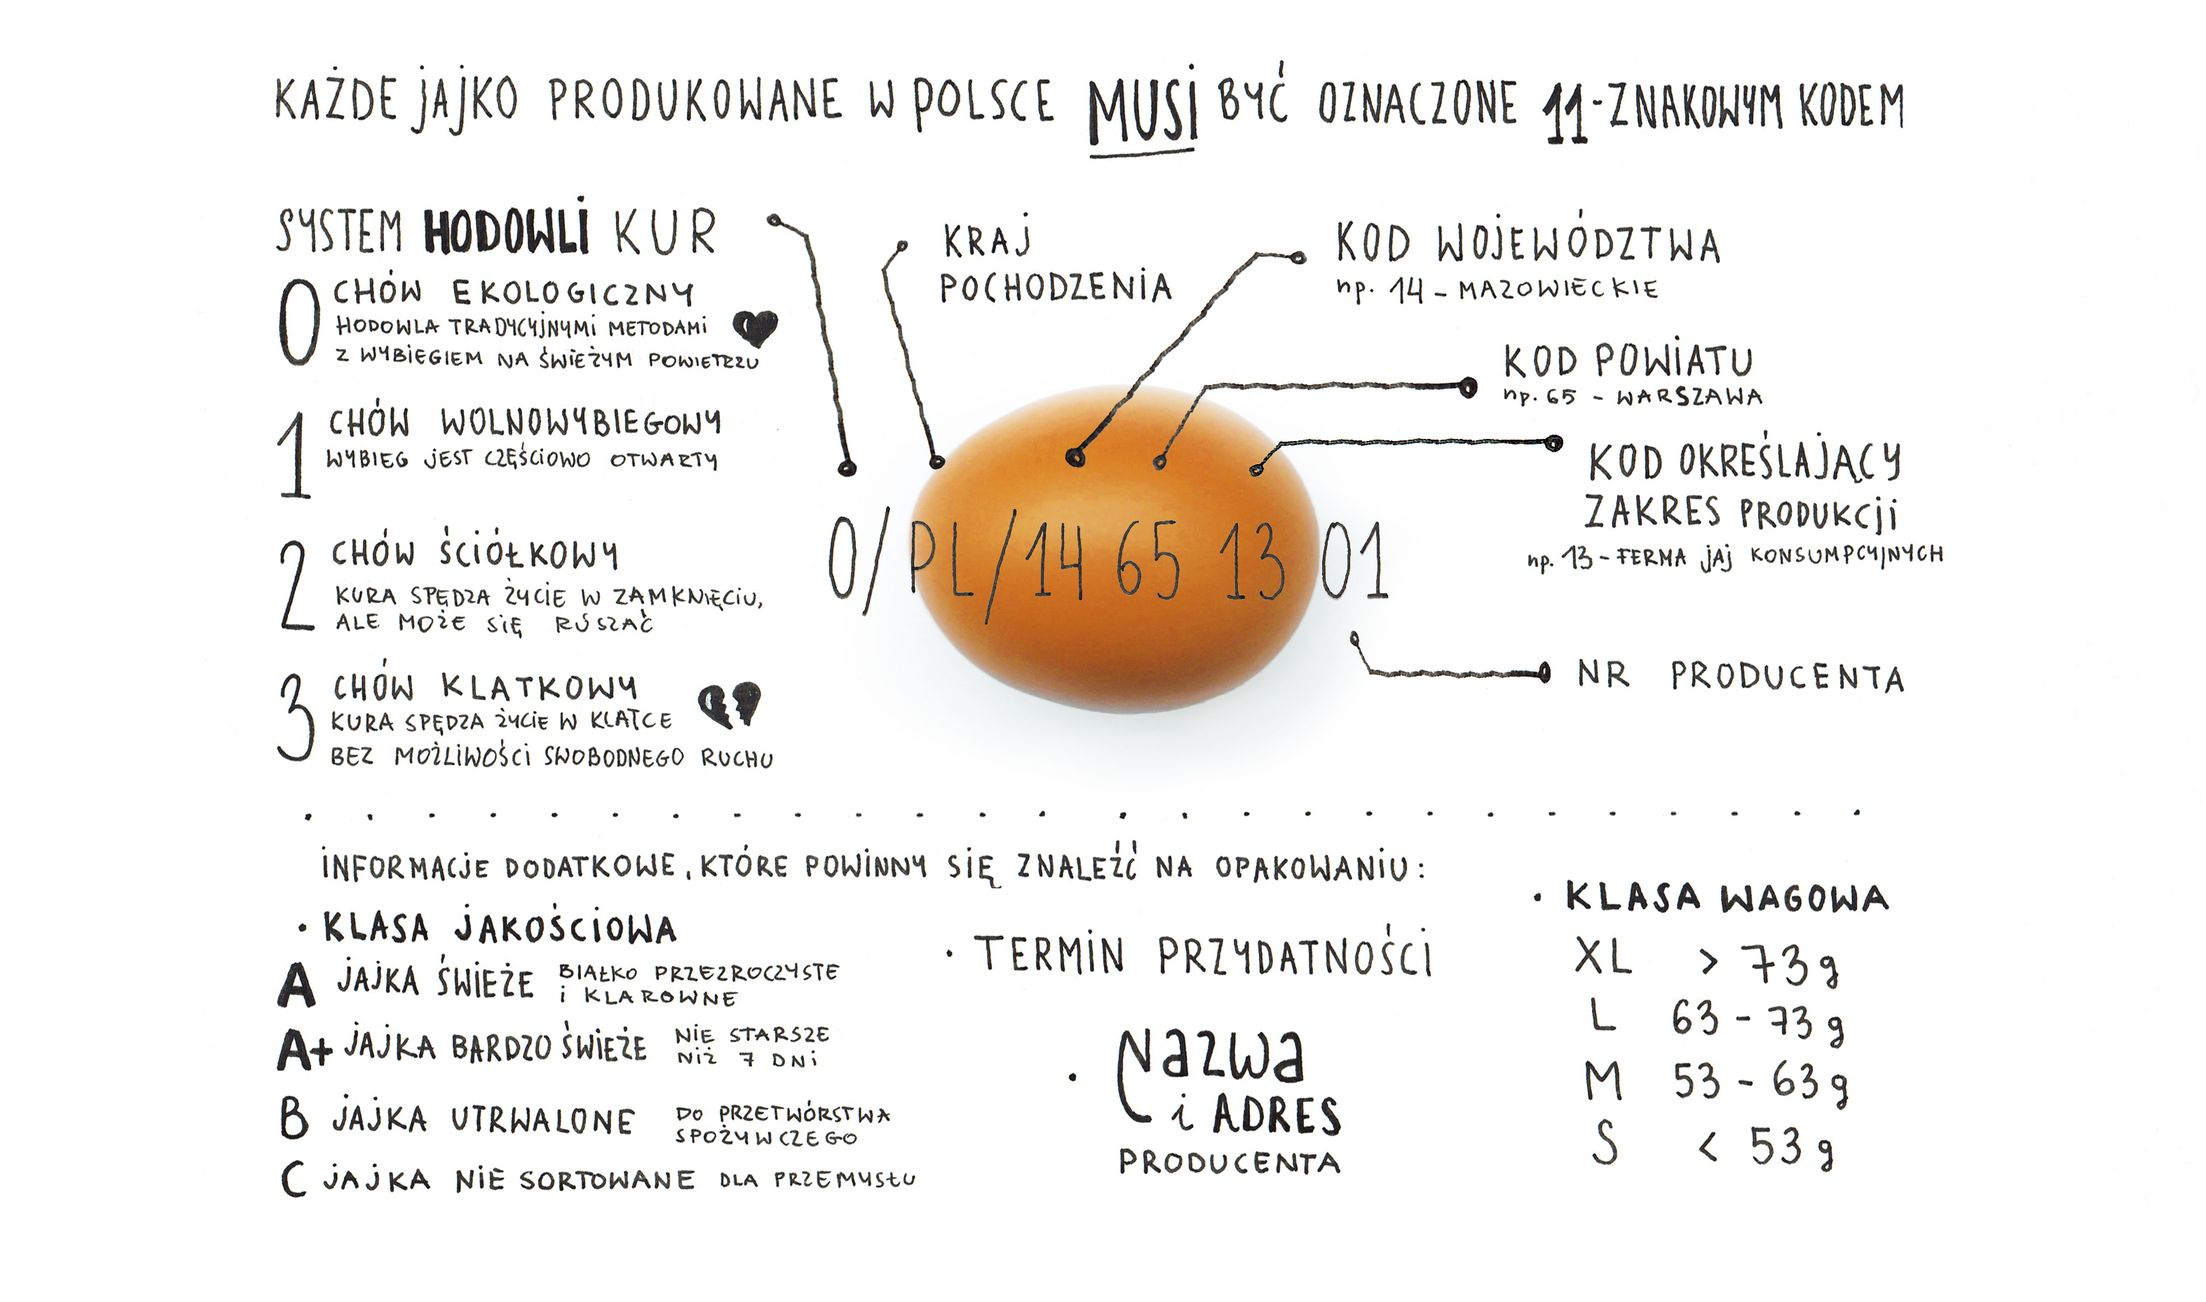 KAŻDE JAJKO PRODUKOWANE W POLSCE MUSI BYĆ OZNACZONE 11-ZNAKOWYM KODEM
SYSTEM HODOWLI KUR
0 CHÓW EKOLOGICZNY
HODOWLA TRADYCYJNYMI METODAMI
Z WYBIEGIEM NA ŚWIEŻYM POWIETRZU
1 CHÓW WOLNOWYBIEGOWY
WYBIEG JEST CZĘŚCIOWO OTWARTY
2 CHÓW ŚCIÓŁKOWY
KURA SPĘDZA ŻYCIE W ZAMKNIĘCIU,
ALE MOŻE SIĘ RUSZAĆ
3 CHÓW KLATKOWY
KURA SPĘDZA ŻYCIE W KLATCE
BEZ MOŻLIWOŚCI SWOBODNEGO RUCHU
KRAJ
POCHODZENIA
KOD WOJEWÓDZTWA
np. 14 - MAZOWIECKIE
KOD POWIATU
np. 65 - WARSZAWA
KOD OKREŚLAJĄCY
ZAKRES PRODUKCJI
np. 13 - FERMA JAJ KONSUMPCYJNYCH
0/PL/14 65 13 01
NR PRODUCENTA
INFORMACJE DODATKOWE, KTÓRE POWINNY SIĘ ZNALEŹĆ NA OPAKOWANIU:
• KLASA JAKOŚCIOWA
A JAJKA ŚWIEŻE BIAŁKO PRZEZROCZYSTE
i KLAROWNE
A+ JAJKA BARDZO ŚWIEŻE NIE STARSZE
NIŻ 7 DNI
B JAJKA UTRWALONE DO PRZETWÓRSTWA
SPOŻYWCZEGO
C JAJKA NIE SORTOWANE DLA PRZEMYSŁU
• TERMIN PRZYDATNOŚCI
• Nazwa
i ADRES
PRODUCENTA
• KLASA WAGOWA
XL > 73g
L 63 - 73g
M 53 - 63g
S < 53g